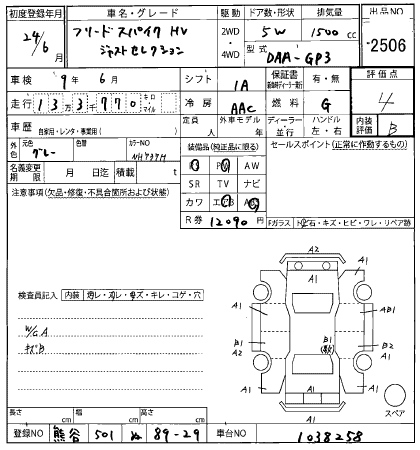 初度登録年月 車名・グレード 駆動 ドア数・形状 排気量 出品NO
24/6月 フリードスパイク HV 2WD・4WD 5W 1500cc 2506
ジャストセレクション 型式 DAA-GP3
車検 9年 6月 シフト IA 保証書 有・無 評価点
走行 13万3千770 キロ マイル 冷房 AAC 燃料 G 4
車歴 自家用・レンタ・事業用( ) 定員 人 外車モデル 年 ディーラー・並行 ハンドル 左・右 内装評価 B
外色 元色 グレー 色替 カラーNO NH737M 装備品(純正品に限る) セールスポイント(正常に作動するもの)
名義変更期限 月 日迄 積載 t PS PW AW
注意事項(欠品・修復・不具合箇所および状態) SR TV ナビ
カワ エアB ABS
R券 12090円 Fガラス 飛石・キズ・ヒビ・ワレ・リペア跡
A2
A1 A1 A1
検査員記入 内装
A1 AB1
W/G A B1 B1 B2
キズB A2 (数)
A1 A1 A1
スペア
長さ cm 幅 cm 高さ cm
登録NO 熊谷 501 ね 89-29 車台NO 1038258